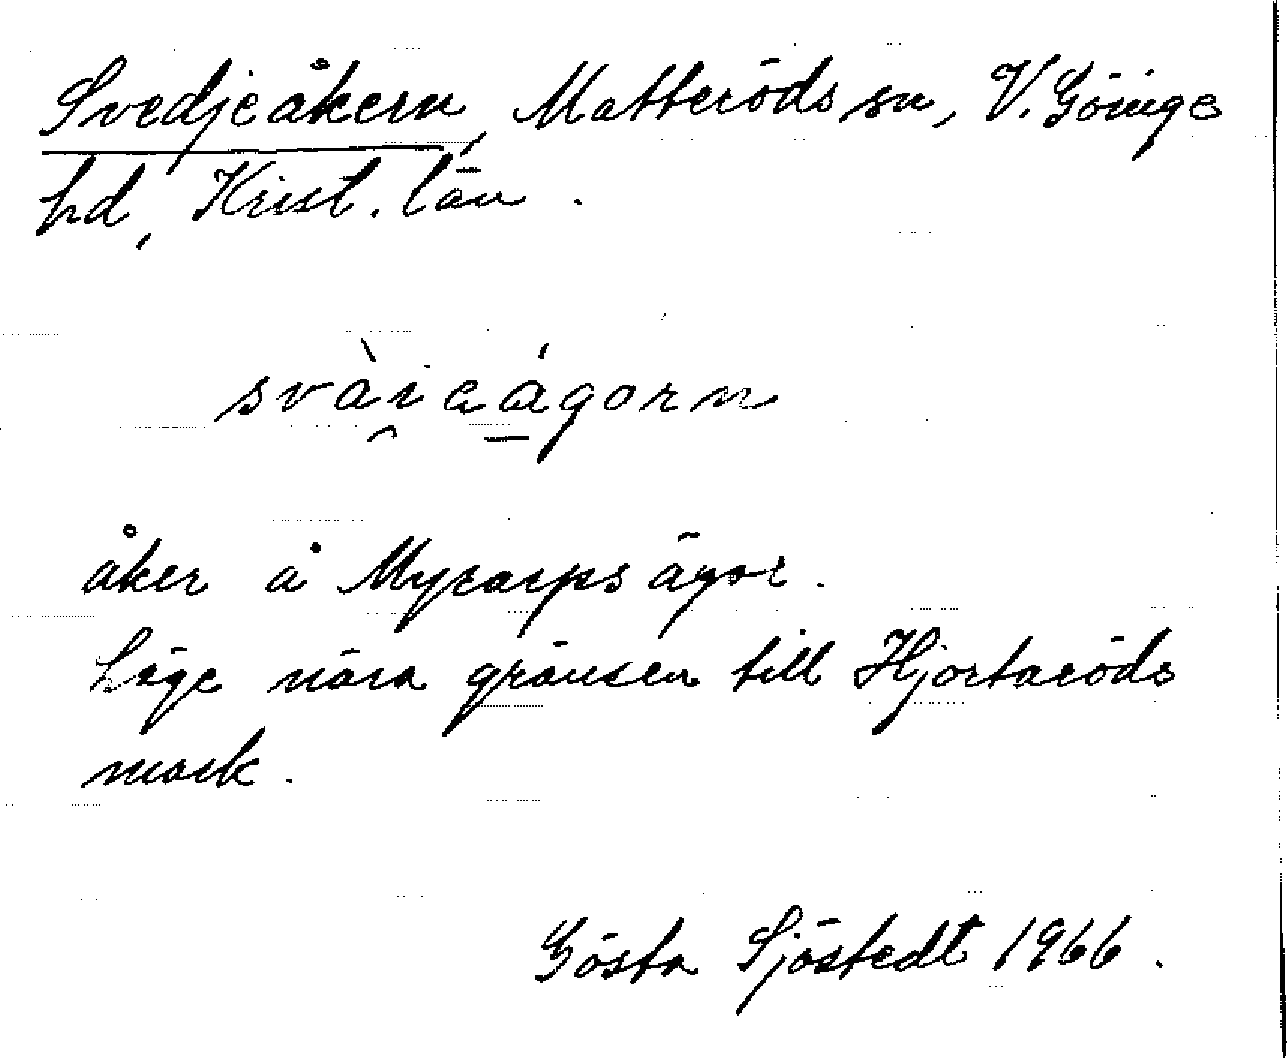 Svedjeåkern, Matteröds sn, V. Göinge
hd, Krist. län.
svàieágorn
åker å Mycarps ägor.
Läge nära gränsen till Hjortaröds
mark.
Gösta Sjöstedt 1966.